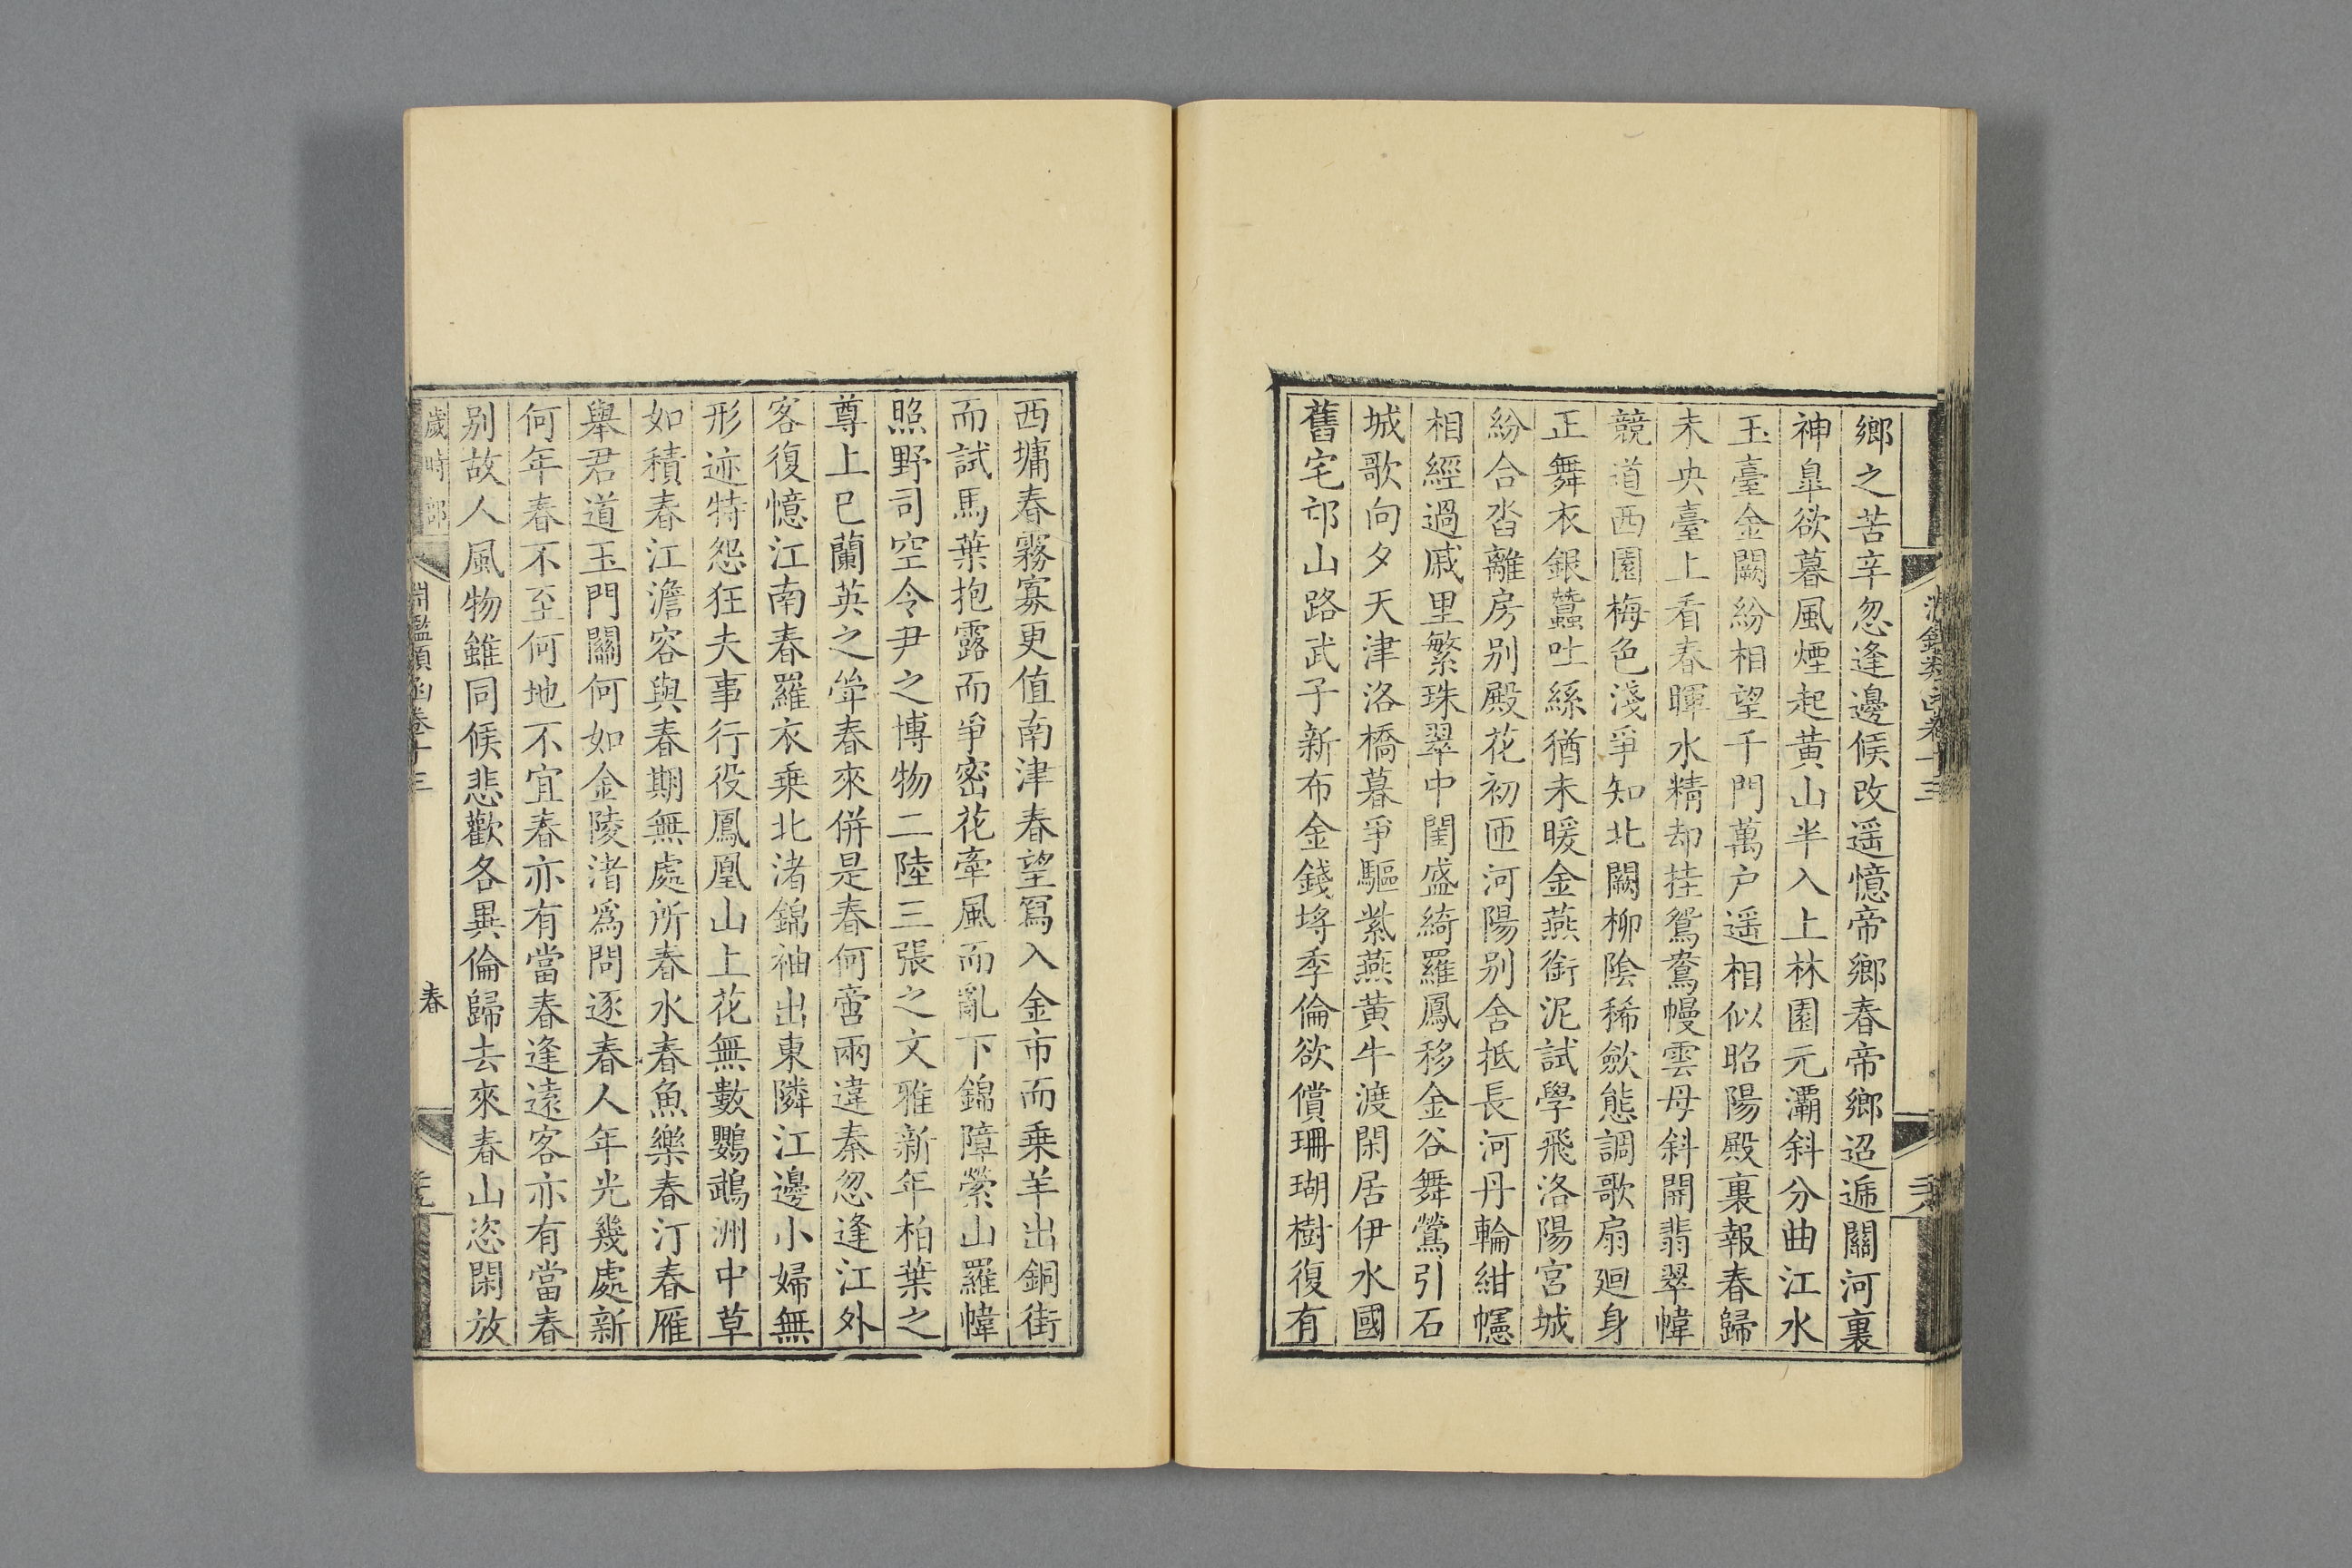 鄉之苦辛忽逢邊候改遥憶帝鄉春帝鄉迢遞關河裏
神臯欲暮風煙起黄山半入上林園元灞斜分曲江水
玉臺金闕紛相望千門萬户遥相似昭陽殿裏報春歸
未央臺上看春暉水精却挂鴛鴦幔雲母斜開翡翠幃
競道西園梅色淺爭知北闕柳陰稀歛態調歌扇廻身
正舞衣銀蠶吐絲猶未暖金燕銜泥試學飛洛陽宮城
紛合沓離房别殿花初匝河陽别舍抵長河丹輪紺幰
相經過戚里繁珠翠中閨盛綺羅鳳移金谷舞鶯引石
城歌向夕天津洛橋暮爭驅紫燕黄牛渡閑居伊水國
舊宅邙山路武子新布金錢埒季倫欲償珊瑚樹復有
淵鑑類函卷十三
西墉春霧寡更值南津春望寫入金市而乗羊出銅街
而試馬葉抱露而爭密花牽風而亂下錦障縈山羅幃
照野司空令尹之博物二陸三張之文雅新年柏葉之
尊上巳蘭英之斝春來併是春何啻兩違秦忽逢江外
客復憶江南春羅衣乗北渚錦袖出東隣江邊小婦無
形迹特怨狂夫事行役鳳凰山上花無數鸚鵡洲中草
如積春江澹容與春期無處所春水春魚樂春汀春雁
舉君道玉門關何如金陵渚爲問逐春人年光幾處新
何年春不至何地不宜春亦有當春逢遠客亦有當春
别故人風物雖同候悲歡各異倫歸去來春山恣閑放
歲時部 淵鑑類函卷十三 春